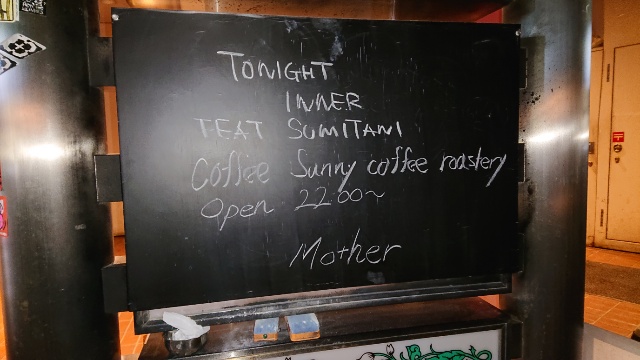 TONIGHT
INNER
TEAT SUMITANI
Coffee Sunny coffee roastery
open 22:00~
Mother